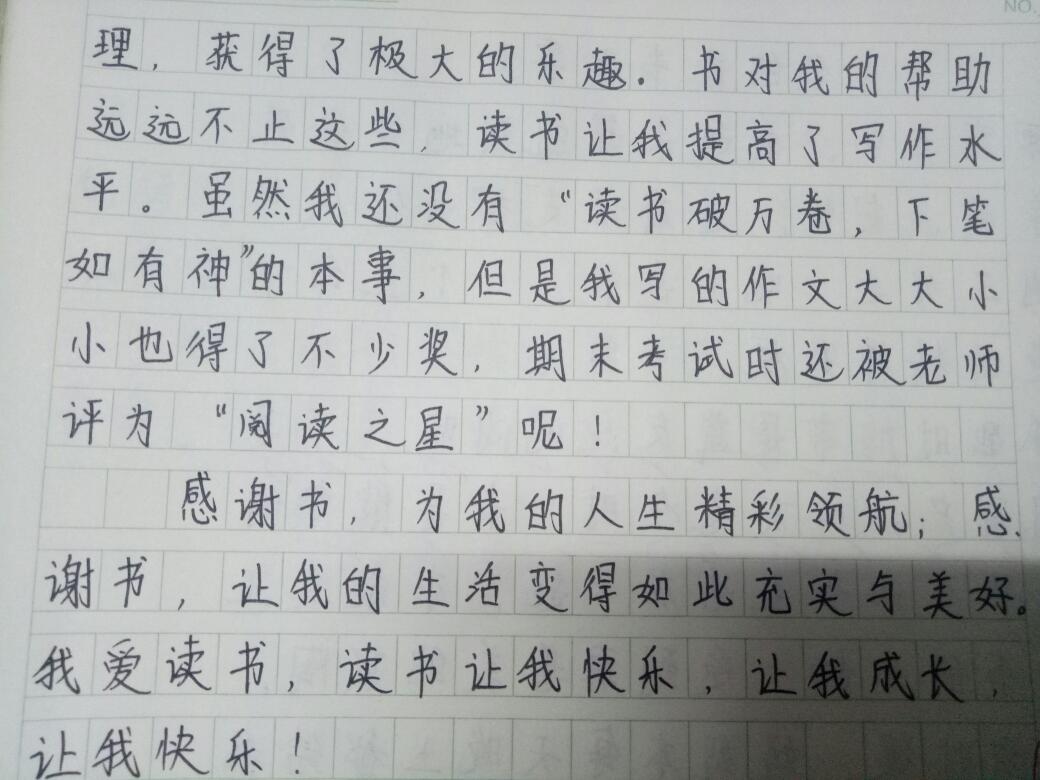 NO.
理，获得了极大的乐趣．书对我的帮助
远远不止这些，读书让我提高了写作水
平。虽然我还没有“读书破万卷，下笔
如有神”的本事，但是我写的作文大大小
小也得了不少奖，期末考试时还被老师
评为“阅读之星”呢！
感谢书，为我的人生精彩领航；感
谢书，让我的生活变得如此充实与美好。
我爱读书，读书让我快乐，让我成长，
让我快乐！